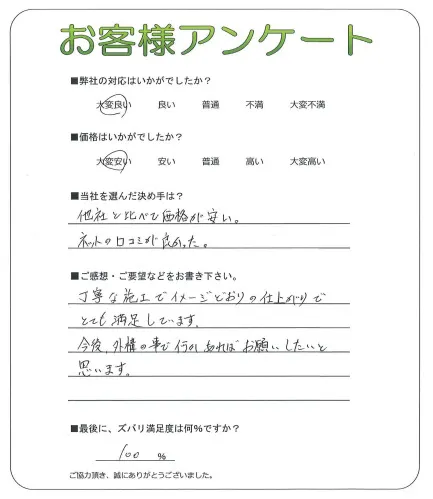 お客様アンケート
■弊社の対応はいかがでしたか?
大変良い 良い 普通 不満 大変不満
■価格はいかがでしたか?
大変安い 安い 普通 高い 大変高い
■当社を選んだ決め手は?
他社と比べて価格が安い。
ネットの口コミが良かった。
■ご感想・ご要望などをお書き下さい。
丁寧な施工でイメージどおりの仕上がりで
とても満足しています。
今後、外構の事で何かあればお願いしたいと
思います。
■最後に、ズバリ満足度は何%ですか?
100 %
ご協力頂き、誠にありがとうございました。